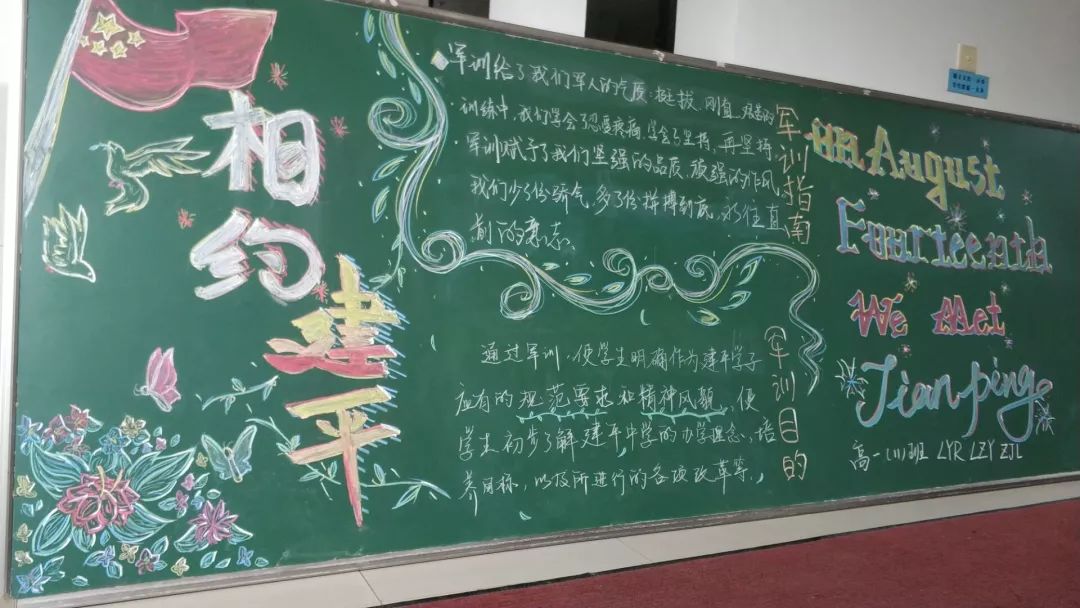 相约
建平
军训给了我们军人的气质：挺拔、刚直、艰苦的
训练中，我们学会了忍耐疼痛，学会了坚持，再坚持，
军训赋予了我们坚强的品质，顽强的作风，
我们少了份骄气，多了份拼搏到底，永往直
前的意志。
军训指南
通过军训，使学生明确作为建平学子
应有的规范要求和精神风貌，使
学生初步了解建平中学的办学理念、培
养目标，以及所进行的各项改革等。
军训目的
August
Fourteenth
We Met
Jianping
高一(11)班 LYR LZY ZJL